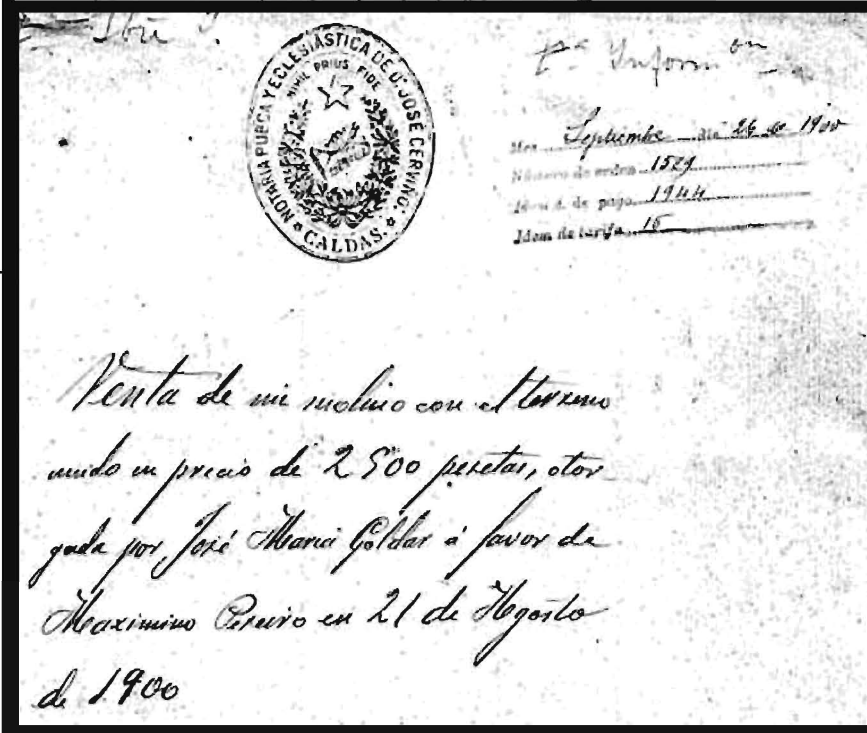 NOTARIA PUBCA Y ECLESIÁSTICA DE D. JOSÉ CERVIÑO.
NIHIL PRIUS FIDE
CALDAS.
Mes Septiembre día 26 de 1900
Número de orden 1529
Idem d. de pago 1944
Idem de tarifa 15
Venta de un molino con el terreno
unido en precio de 2500 pesetas, otor
gada por José María Góldar á favor de
Maximino Pereiro en 21 de Agosto
de 1900